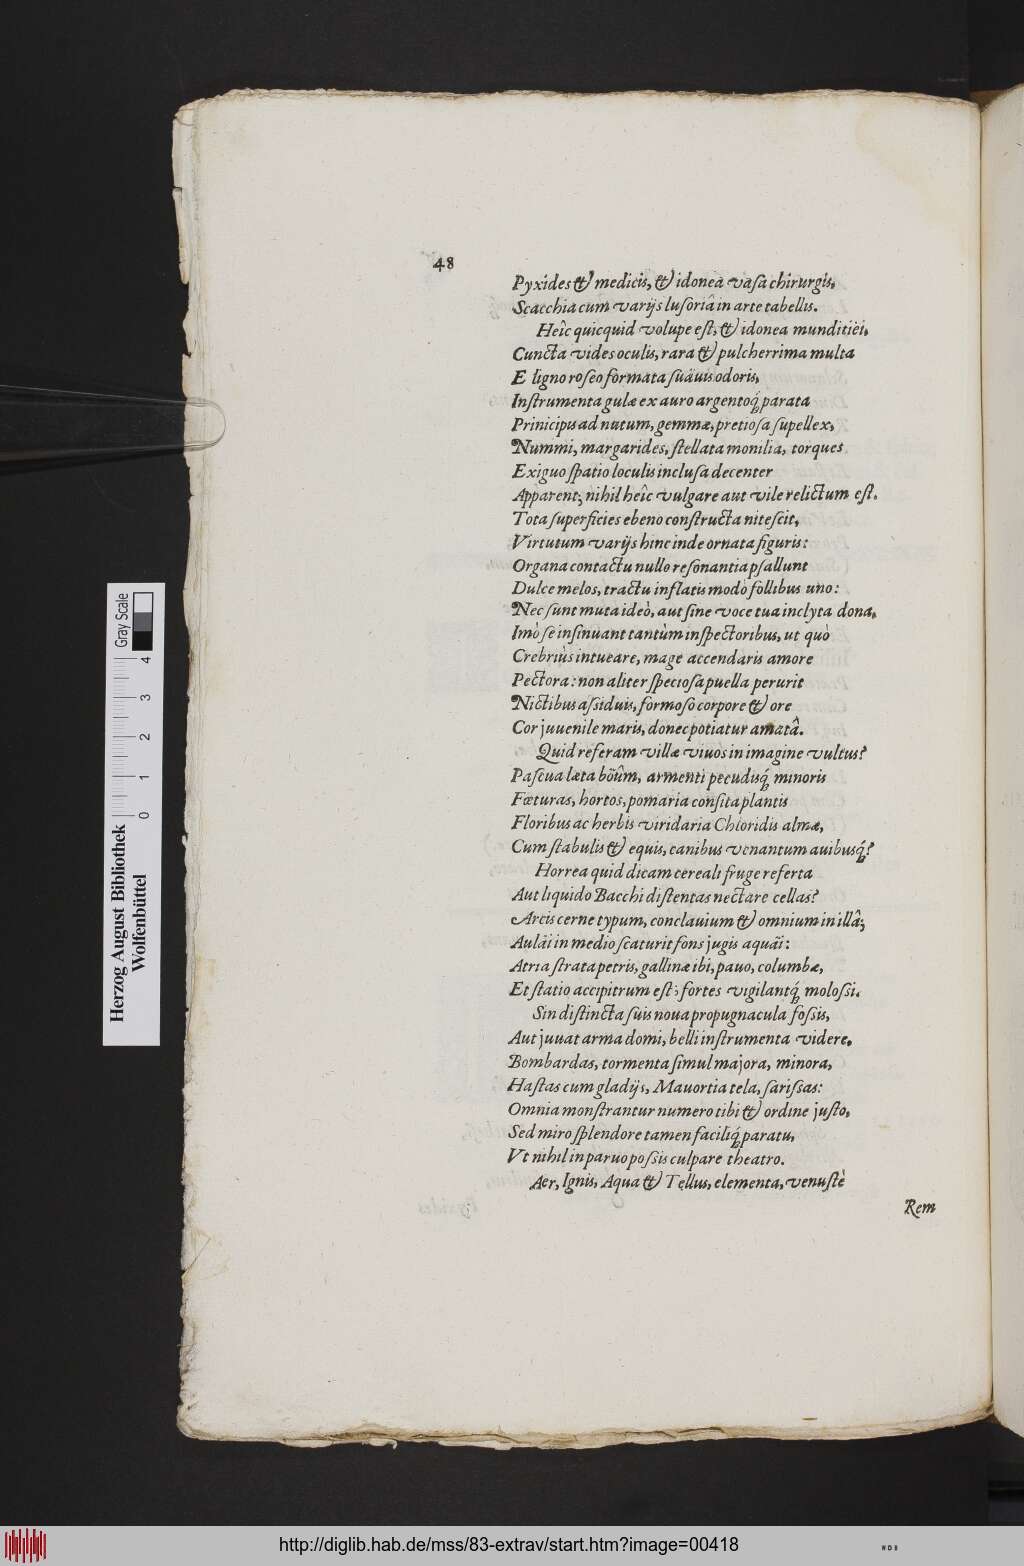 48
Pyxides & medicis, & idonea vasa chirurgis,
Scacchia cum varijs lusoriâ in arte tabellis.
Heîc quicquid volupe est, & idonea munditiëi,
Cuncta vides oculis, rara & pulcherrima multa
E ligno roseo formata süävis odoris,
Instrumenta gulæ ex auro argentoq́; parata
Prinicipis ad nutum, gemmæ, pretiosa supellex,
Nummi, margarides, stellata monilia, torques
Exiguo spatio loculis inclusa decenter
Apparent; nihil heîc vulgare aut vile relictum est.
Tota superficies ebeno constructa nitescit,
Virtutum varijs hinc inde ornata figuris:
Organa contactu nullo resonantia psallunt
Dulce melos, tractu inflatis modò follibus uno:
Nec sunt muta ideò, aut sine voce tua inclyta dona,
Imò se insinuant tantùm inspectoribus, ut quò
Crebriùs intueare, mage accendaris amore
Pectora: non aliter speciosa puella perurit
Nictibus assiduis, formoso corpore & ore
Cor juvenile maris, donec potiatur amatâ.
Quid referam villæ vivos in imagine vultus?
Pascua læta böûm, armenti pecudisq́; minoris
Fæturas, hortos, pomaria consita plantis
Floribus ac herbis viridaria Chloridis almæ,
Cum stabulis & equis, canibus venantum avibusq́;?
Horrea quid dicam cereali fruge referta
Aut liquido Bacchi distentas nectare cellas?
Arcis cerne typum, conclavium & omnium in illâ;
Auläi in medio scaturit fons jugis aquäi:
Atria strata petris, gallinæ ibi, pavo, columbæ,
Et statio accipitrum est; fortes vigilantq́; molossi.
Sin distincta suis nova propugnacula fossis,
Aut juvat arma domi, belli instrumenta videre,
Bombardas, tormenta simul majora, minora,
Hastas cum gladijs, Mavortia tela, sarissas:
Omnia monstrantur numero tibi & ordine justo,
Sed miro splendore tamen faciliq́; paratu,
Vt nihil in parvo possis culpare theatro.
Aer, Ignis, Aqua & Tellus, elementa, venustè
Rem
Herzog August Bibliothek
Wolfenbüttel
0 1 2 3 4
Gray Scale
http://diglib.hab.de/mss/83-extrav/start.htm?image=00418